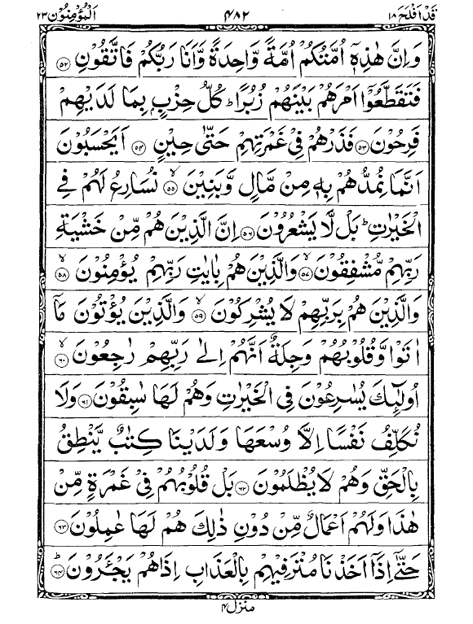 قَدْ اَفْلَحَ ١٨ ٤٨٢ اَلْمُؤْمِنُوْن ٢٣
وَاِنَّ هٰذِهٖٓ اُمَّتُكُمْ اُمَّةً وَّاحِدَةً وَّاَنَا رَبُّكُمْ فَاتَّقُوْنِ ٥٢
فَتَقَطَّعُوْٓا اَمْرَهُمْ بَيْنَهُمْ زُبُرًا ؕ كُلُّ حِزْبٍۭ بِمَا لَدَيْهِمْ
فَرِحُوْنَ ٥٣ فَذَرْهُمْ فِيْ غَمْرَتِهِمْ حَتّٰى حِيْنٍ ٥٤ اَيَحْسَبُوْنَ
اَنَّمَا نُمِدُّهُمْ بِهٖ مِنْ مَّالٍ وَّبَنِيْنَ ۙ ٥٥ نُسَارِعُ لَهُمْ فِي
الْخَيْرٰتِ ؕ بَلْ لَّا يَشْعُرُوْنَ ٥٦ اِنَّ الَّذِيْنَ هُمْ مِّنْ خَشْيَةِ
رَبِّهِمْ مُّشْفِقُوْنَ ۙ ٥٧ وَالَّذِيْنَ هُمْ بِاٰيٰتِ رَبِّهِمْ يُؤْمِنُوْنَ ۙ ٥٨
وَالَّذِيْنَ هُمْ بِرَبِّهِمْ لَا يُشْرِكُوْنَ ۙ ٥٩ وَالَّذِيْنَ يُؤْتُوْنَ مَآ
اٰتَوْا وَّقُلُوْبُهُمْ وَجِلَةٌ اَنَّهُمْ اِلٰى رَبِّهِمْ رٰجِعُوْنَ ۙ ٦٠
اُولٰٓئِكَ يُسٰرِعُوْنَ فِي الْخَيْرٰتِ وَهُمْ لَهَا سٰبِقُوْنَ ٦١ وَلَا
نُكَلِّفُ نَفْسًا اِلَّا وُسْعَهَا وَلَدَيْنَا كِتٰبٌ يَّنْطِقُ
بِالْحَقِّ وَهُمْ لَا يُظْلَمُوْنَ ٦٢ بَلْ قُلُوْبُهُمْ فِيْ غَمْرَةٍ مِّنْ
هٰذَا وَلَهُمْ اَعْمَالٌ مِّنْ دُوْنِ ذٰلِكَ هُمْ لَهَا عٰمِلُوْنَ ٦٣
حَتّٰٓى اِذَآ اَخَذْنَا مُتْرَفِيْهِمْ بِالْعَذَابِ اِذَا هُمْ يَجْـَٔرُوْنَ ؕ ٦٤
منزل ٤